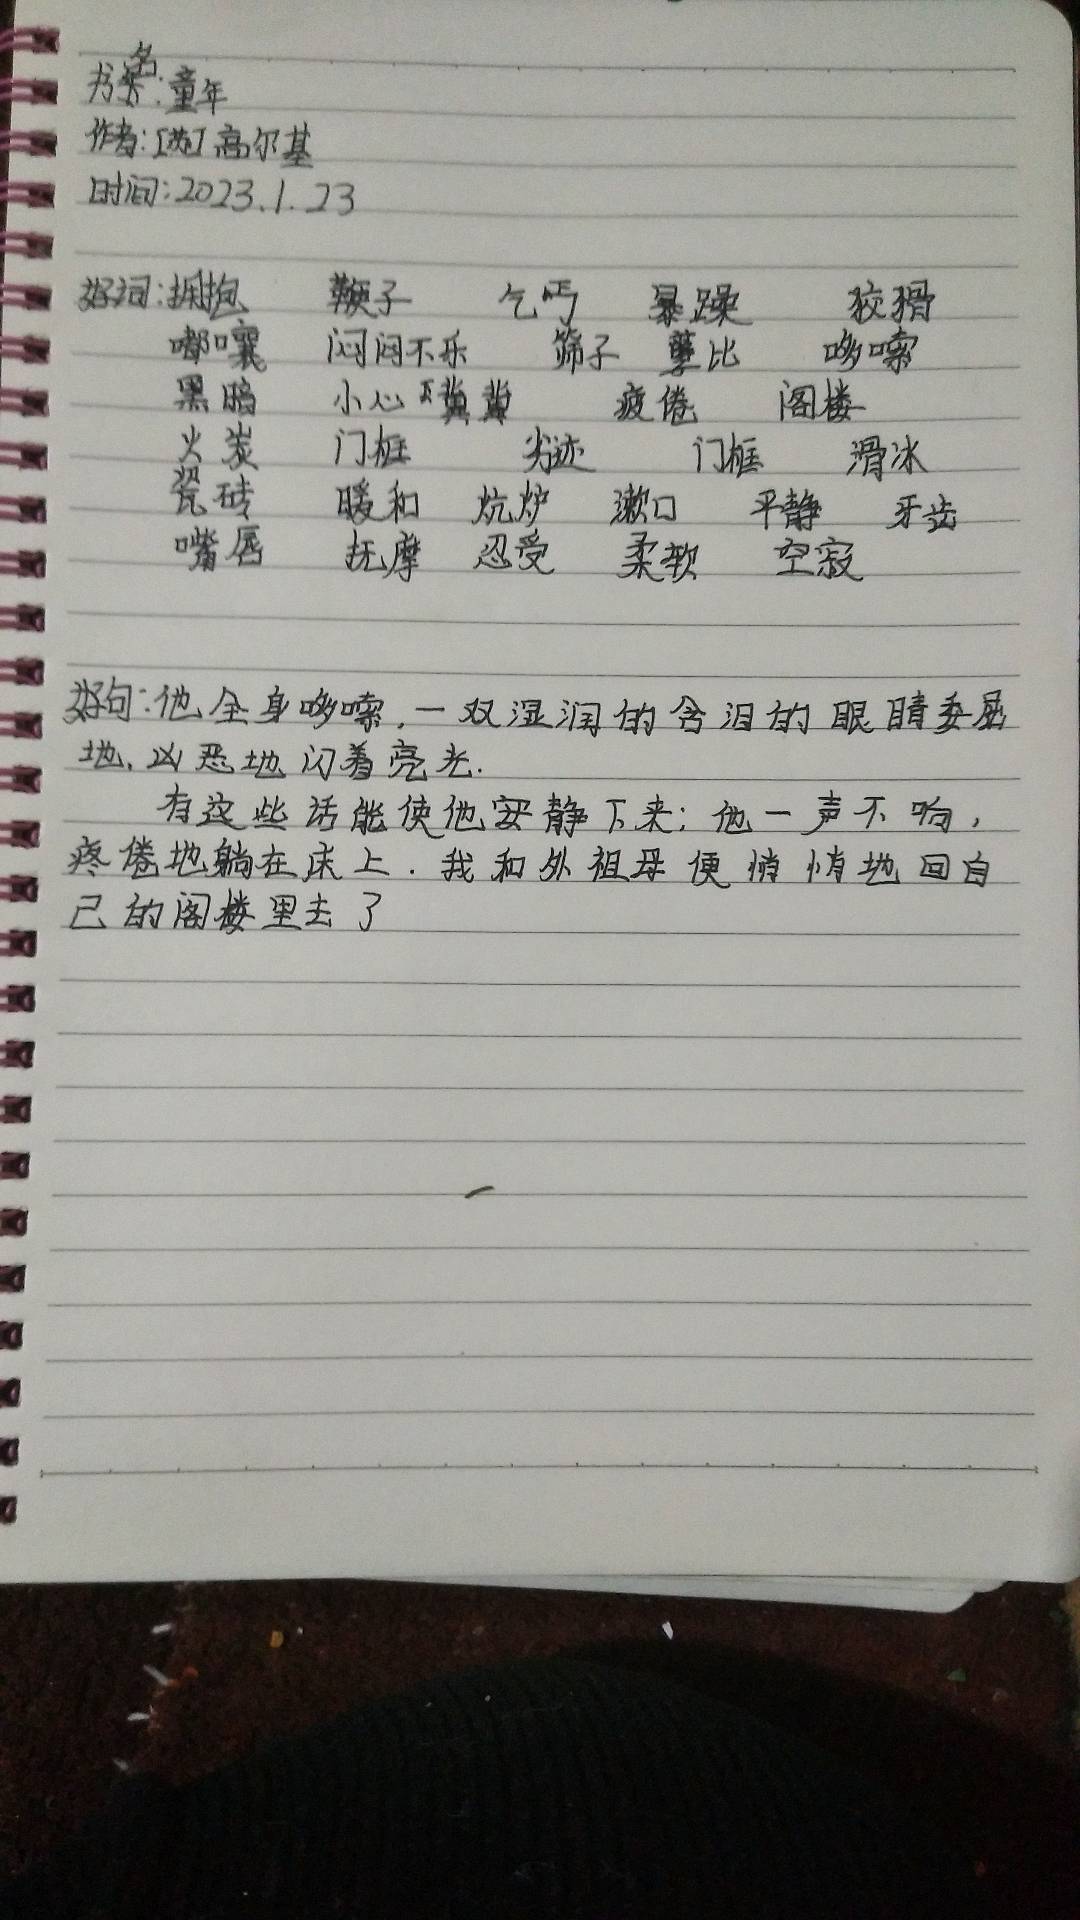 书名:童年
作者:[苏]高尔基
时间:2023.1.23
好词:拥抱 鞭子 乞丐 暴躁 狡猾
嘟囔 闷闷不乐 筛子 孽比 哆嗦
黑暗 小心翼翼 疲倦 阁楼
火炭 门框 劣迹 门框 滑冰
瓷砖 暖和 炕炉 漱口 平静 牙齿
嘴唇 抚摩 忍受 柔软 空寂
好句:他全身哆嗦,一双湿润的含泪的眼睛委屈
地,凶恶地闪着亮光.
有这些话能使他安静下来;他一声不响,
疼倦地躺在床上.我和外祖母便悄悄地回自
己的阁楼里去了